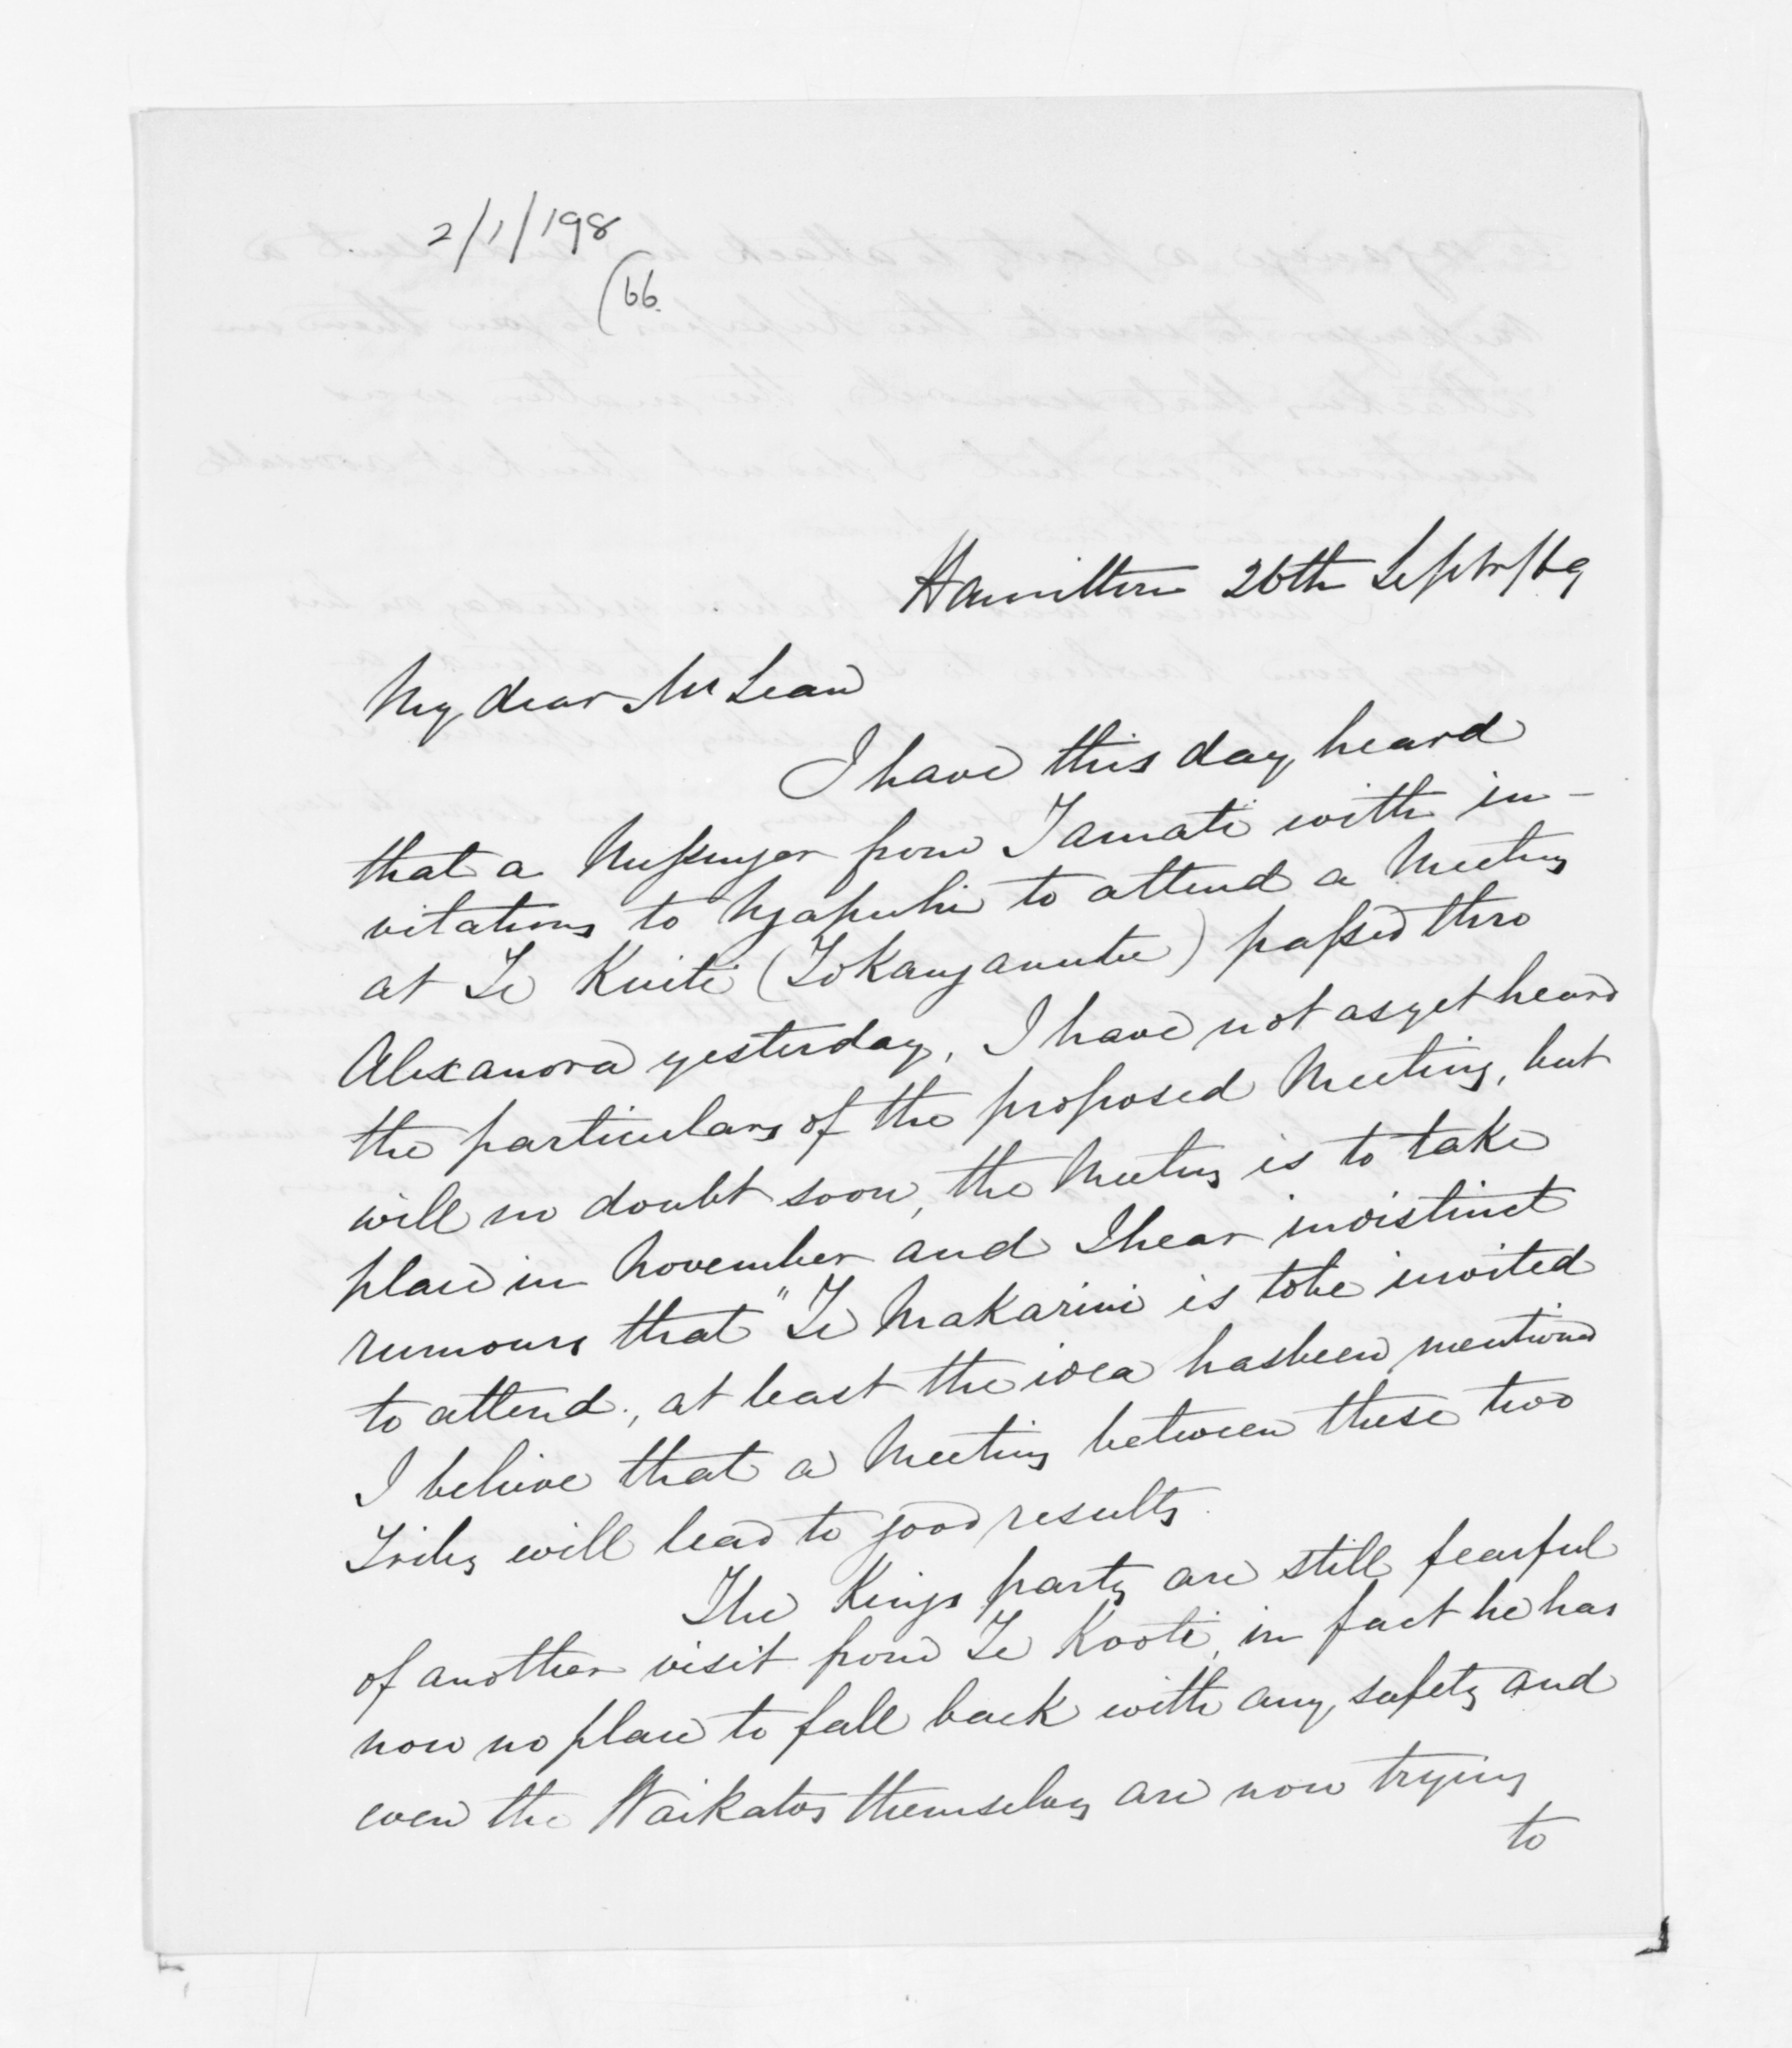 2/1/198
(66.
Hamilton 26th Septbr/69
My dear McLean
I have this day heard
that a Messenger from Tamati with in-
vitations to Ngapuhi to attend a Meeting
at Te Kuiti (Tokanganutu) passed thro
Alexandra yesterday, I have not as yet heard
the particulars of the proposed Meeting, but
will no doubt soon, the Meeting is to take
place in November and I hear indistinct
rumours that "Te Makarini is to be invited
to attend, at least the idea has been mentioned
I believe that a Meeting between these two
Tribes will lead to good results.
The Kings party are still fearful
of another visit from Te Kooti, in fact he has
now no place to fall back with any safety and
even the Waikatos themselves are now trying
to